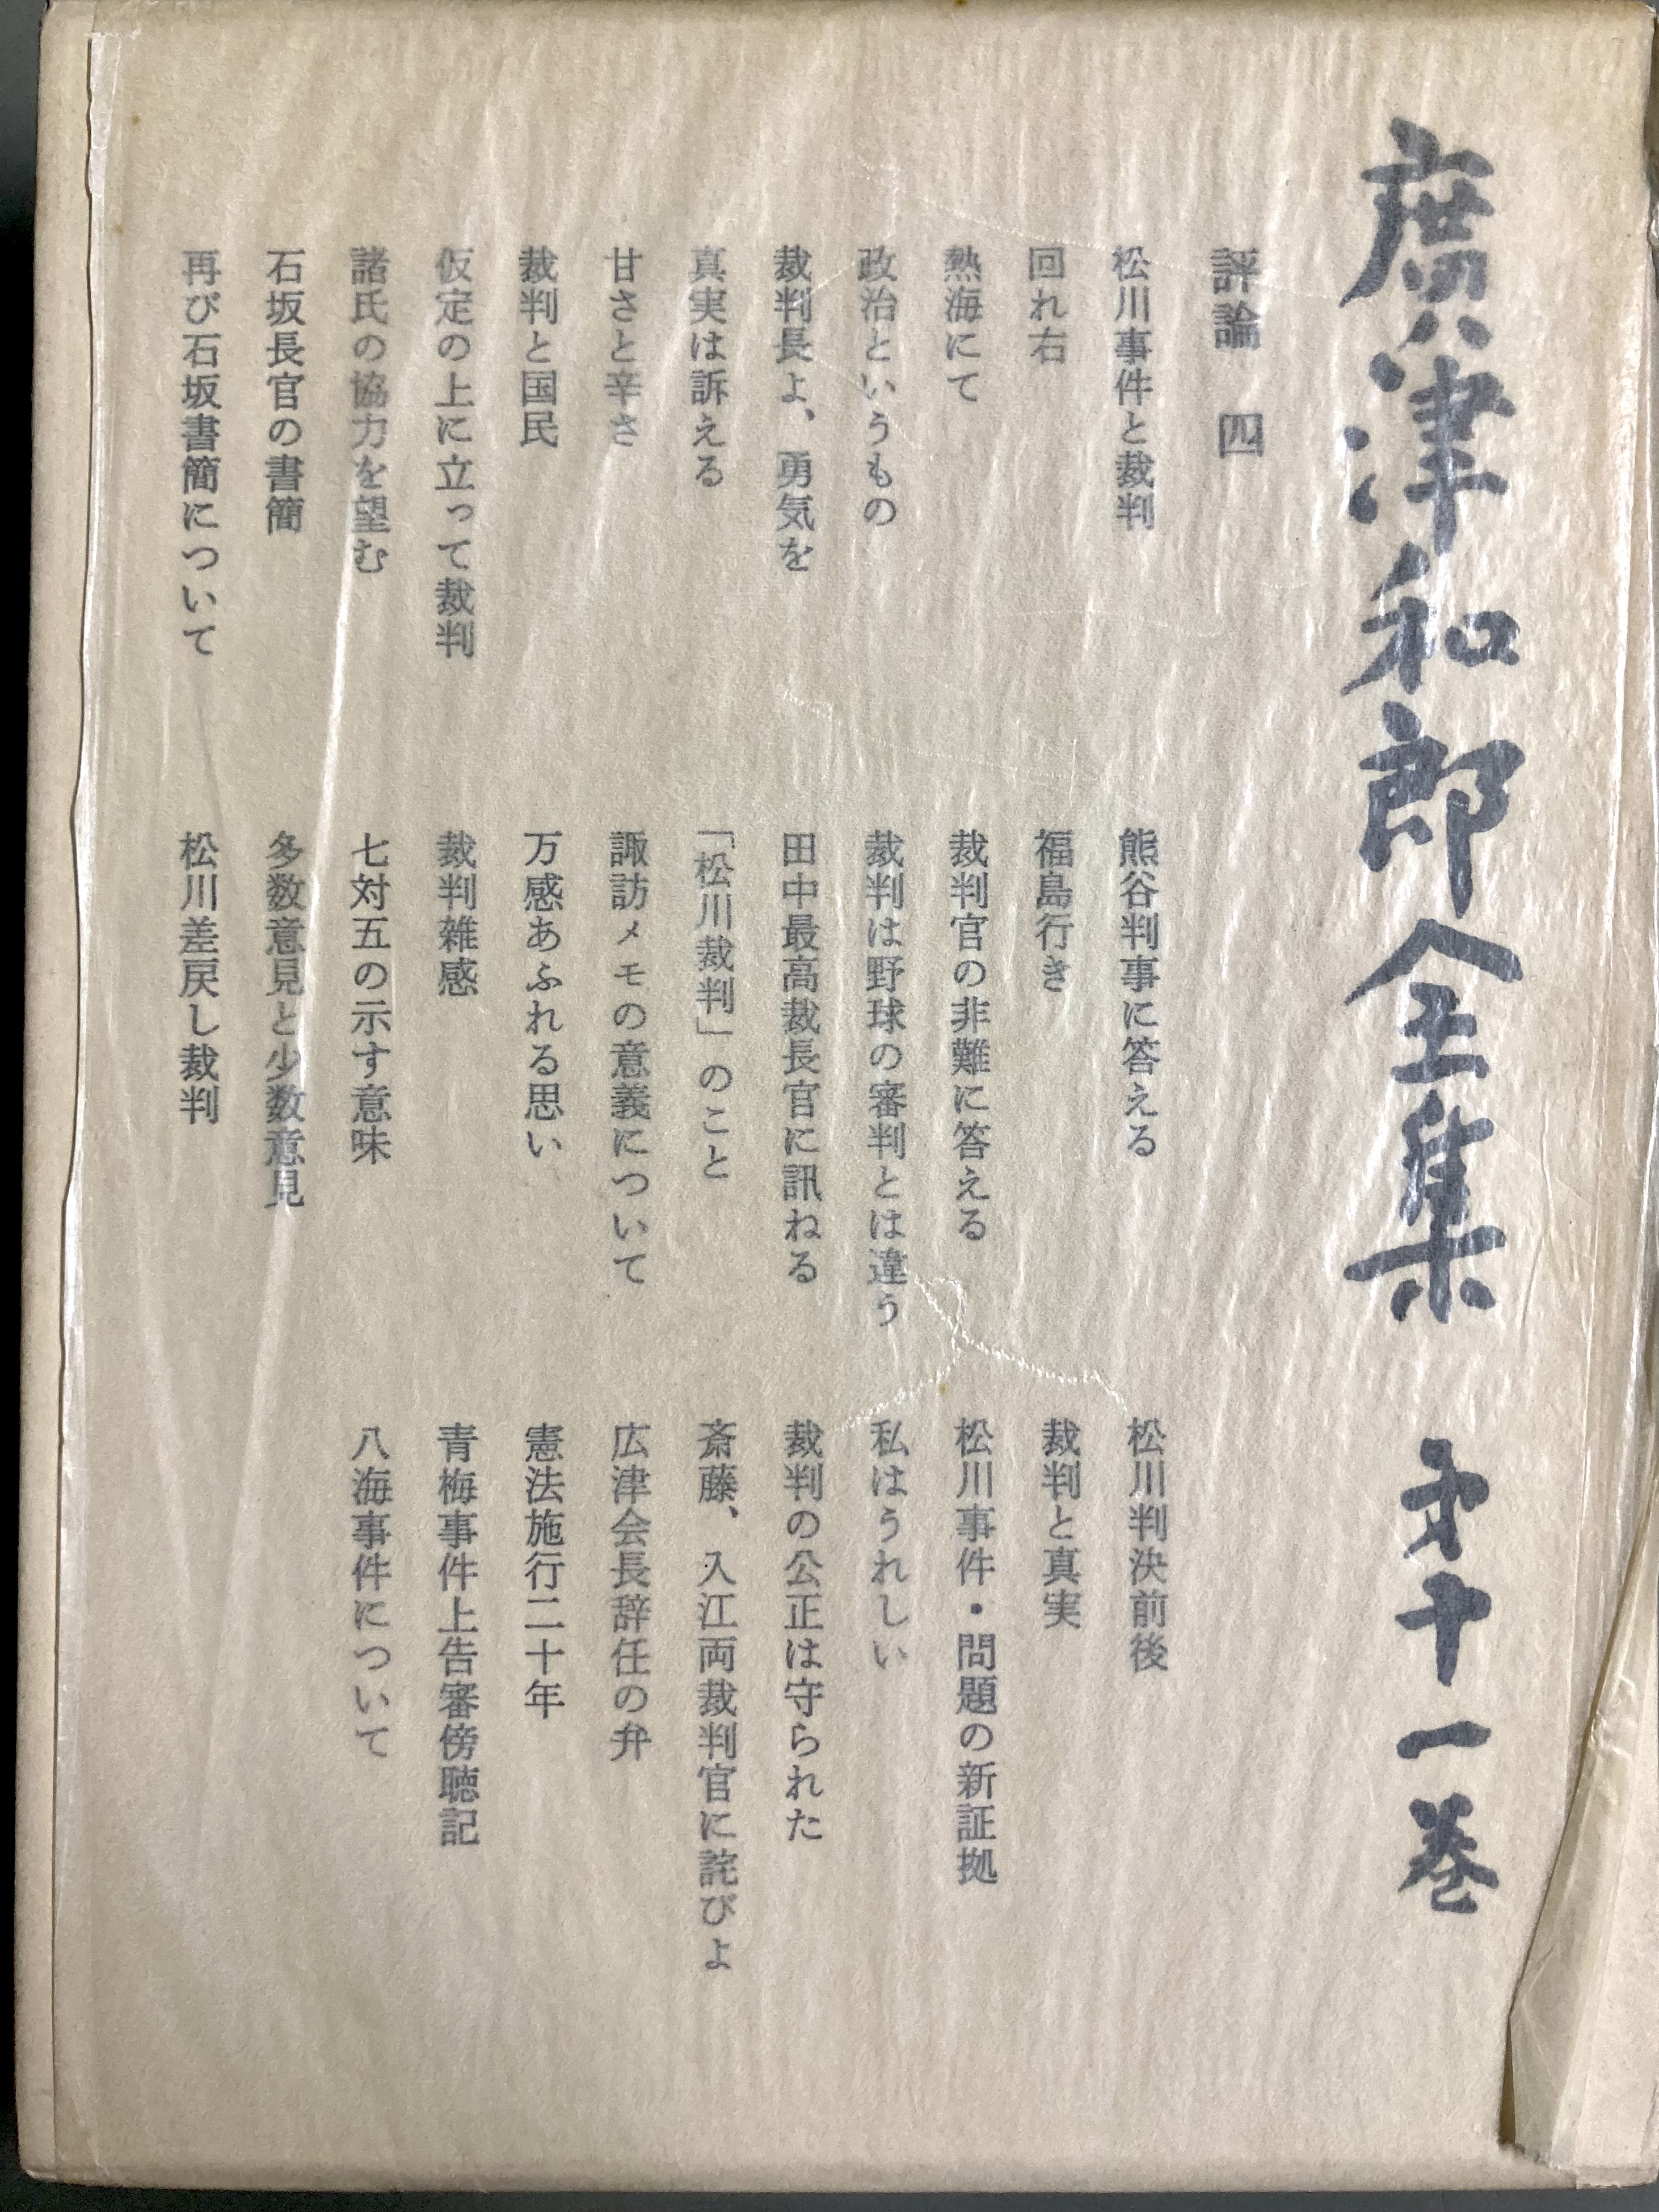 廣津和郎全集 第十一巻
評論 四
松川事件と裁判
回れ右
熱海にて
政治というもの
裁判長よ、勇気を
真実は訴える
甘さと辛さ
裁判と国民
仮定の上に立って裁判
諸氏の協力を望む
石坂長官の書簡
再び石坂書簡について
熊谷判事に答える
福島行き
裁判官の非難に答える
裁判は野球の審判とは違う
田中最高裁長官に訊ねる
「松川裁判」のこと
諏訪メモの意義について
万感あふれる思い
裁判雑感
七対五の示す意味
多数意見と少数意見
松川差戻し裁判
松川判決前後
裁判と真実
松川事件・問題の新証拠
私はうれしい
裁判の公正は守られた
斎藤、入江両裁判官に詫びよ
広津会長辞任の弁
憲法施行二十年
青梅事件上告審傍聴記
八海事件について